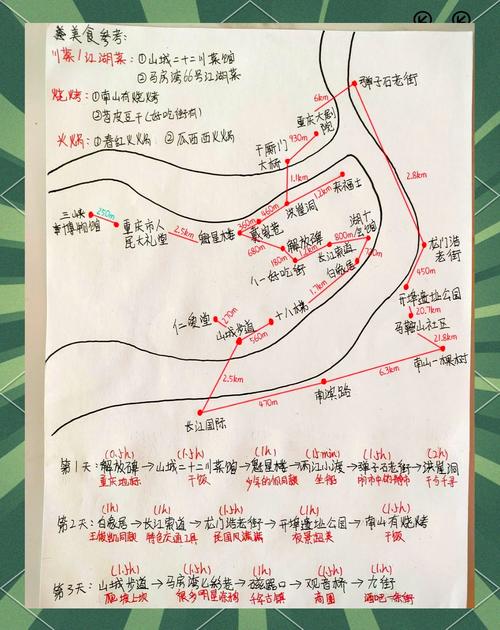 美食参考：
川菜/江湖菜：①山城二十二川菜馆
②马房湾66号江湖菜
烧烤：①南山有烧烤
②苕皮豆干(好吃街有)
火锅：①春红火火锅 ②瓜西西火锅
弹子石老街
6km
重庆大剧院
930m
千厮门大桥
1.1km
1.2km
来福士
2.8km
三峡博物馆
250m
重庆市人民大礼堂
2.5km
魁星楼
360m
460m
洪崖洞
戴家巷
湖广会馆
680m
解放碑
800m
180m
1.2km
长江索道
龙门浩老街
八一好吃街
白象居
1.7km
450m
开埠遗址公园
仁爱堂
270m
十八梯
20.7km
山城步道
马鞍山社区
560m
21.8km
南山一棵树
2.5km
6.3km
南滨路
470m
长江国际
(0.5h) (1.5h) (1h) (15min) (1.5h) (2h)
第1天：解放碑→山城二十二川菜馆→魁星楼→两江小渡→弹子石老街→洪崖洞
重庆地标 干饭 少年的你同款 坐船 闹市中的静市 千与千寻
(1h) (1h) (1.5h) (1h) (1.5h)
第2天：白象居→长江索道→龙门浩老街→开埠遗址公园→南山有烧烤
王俊凯同款 特色交通工具 民国风满满 夜景超美 干饭
(1.5h) (1.5h) (1h) (1.5h) (1.5h)
第3天：山城步道→马房湾→磁器口→观音桥→九街
爬坡上坎 很多明星来拍 千年古镇 商圈 酒吧一条街